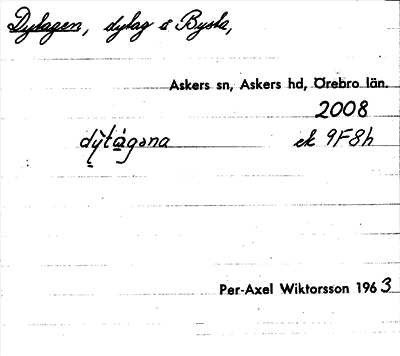 Dytagen, dytag i Bysta,
Askers sn, Askers hd, Örebro län.
2008
dỳtágəna ek 9F8h
Per-Axel Wiktorsson 1963